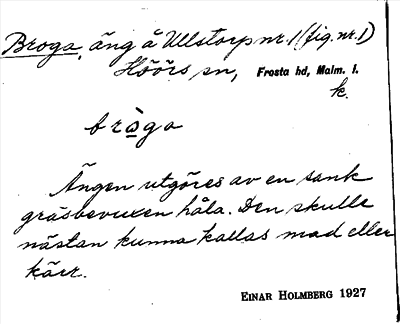 Broga, äng å Ullstorp nr. 1 (fig. nr. 1)
Höörs sn, Frosta hd, Malm. l.
k.
bròga
Ängen utgöres av en sank
gräsbevuxen håla. Den skulle
nästan kunna kallas mad eller
kärr.
EINAR HOLMBERG 1927